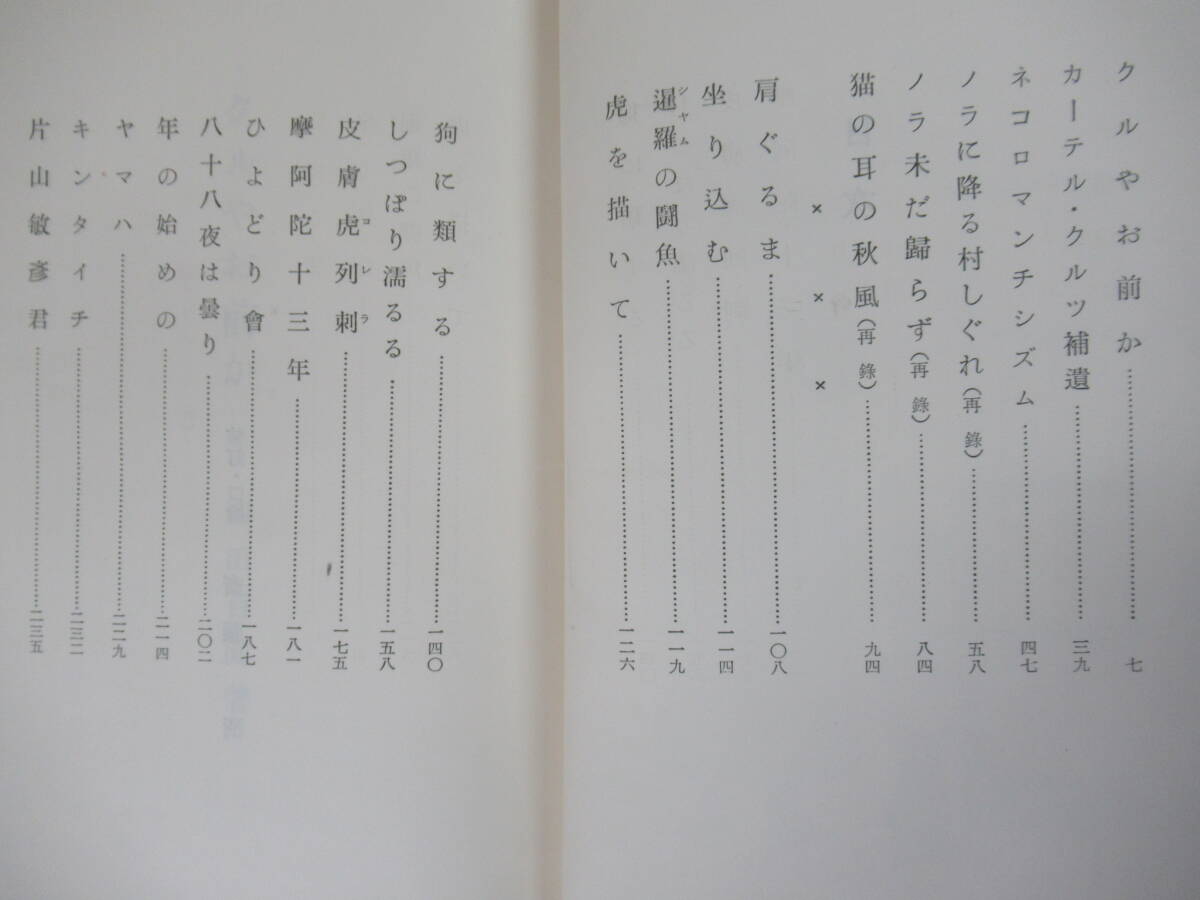 クルやお前か……………………七
カーテル・クルツ補遺……………………三九
ネコロマンチシズム……………………四七
ノラに降る村しぐれ(再錄)……………………五八
ノラ未だ歸らず(再錄)……………………八四
猫の耳の秋風(再錄)……………………九四
× × ×
肩ぐるま……………………一〇八
坐り込む……………………一一四
暹羅の闘魚……………………一一九
シヤム
虎を描いて……………………一二六
狗に類する……………………一四〇
しつぽり濡るる……………………一五八
皮膚虎列刺……………………一七五
コレラ
摩阿陀十三年……………………一八一
ひよどり會……………………一八七
八十八夜は曇り……………………二〇二
年の始めの……………………二一四
ヤマハ……………………二二九
キンタイチ……………………二三二
片山敏彥君……………………二三五